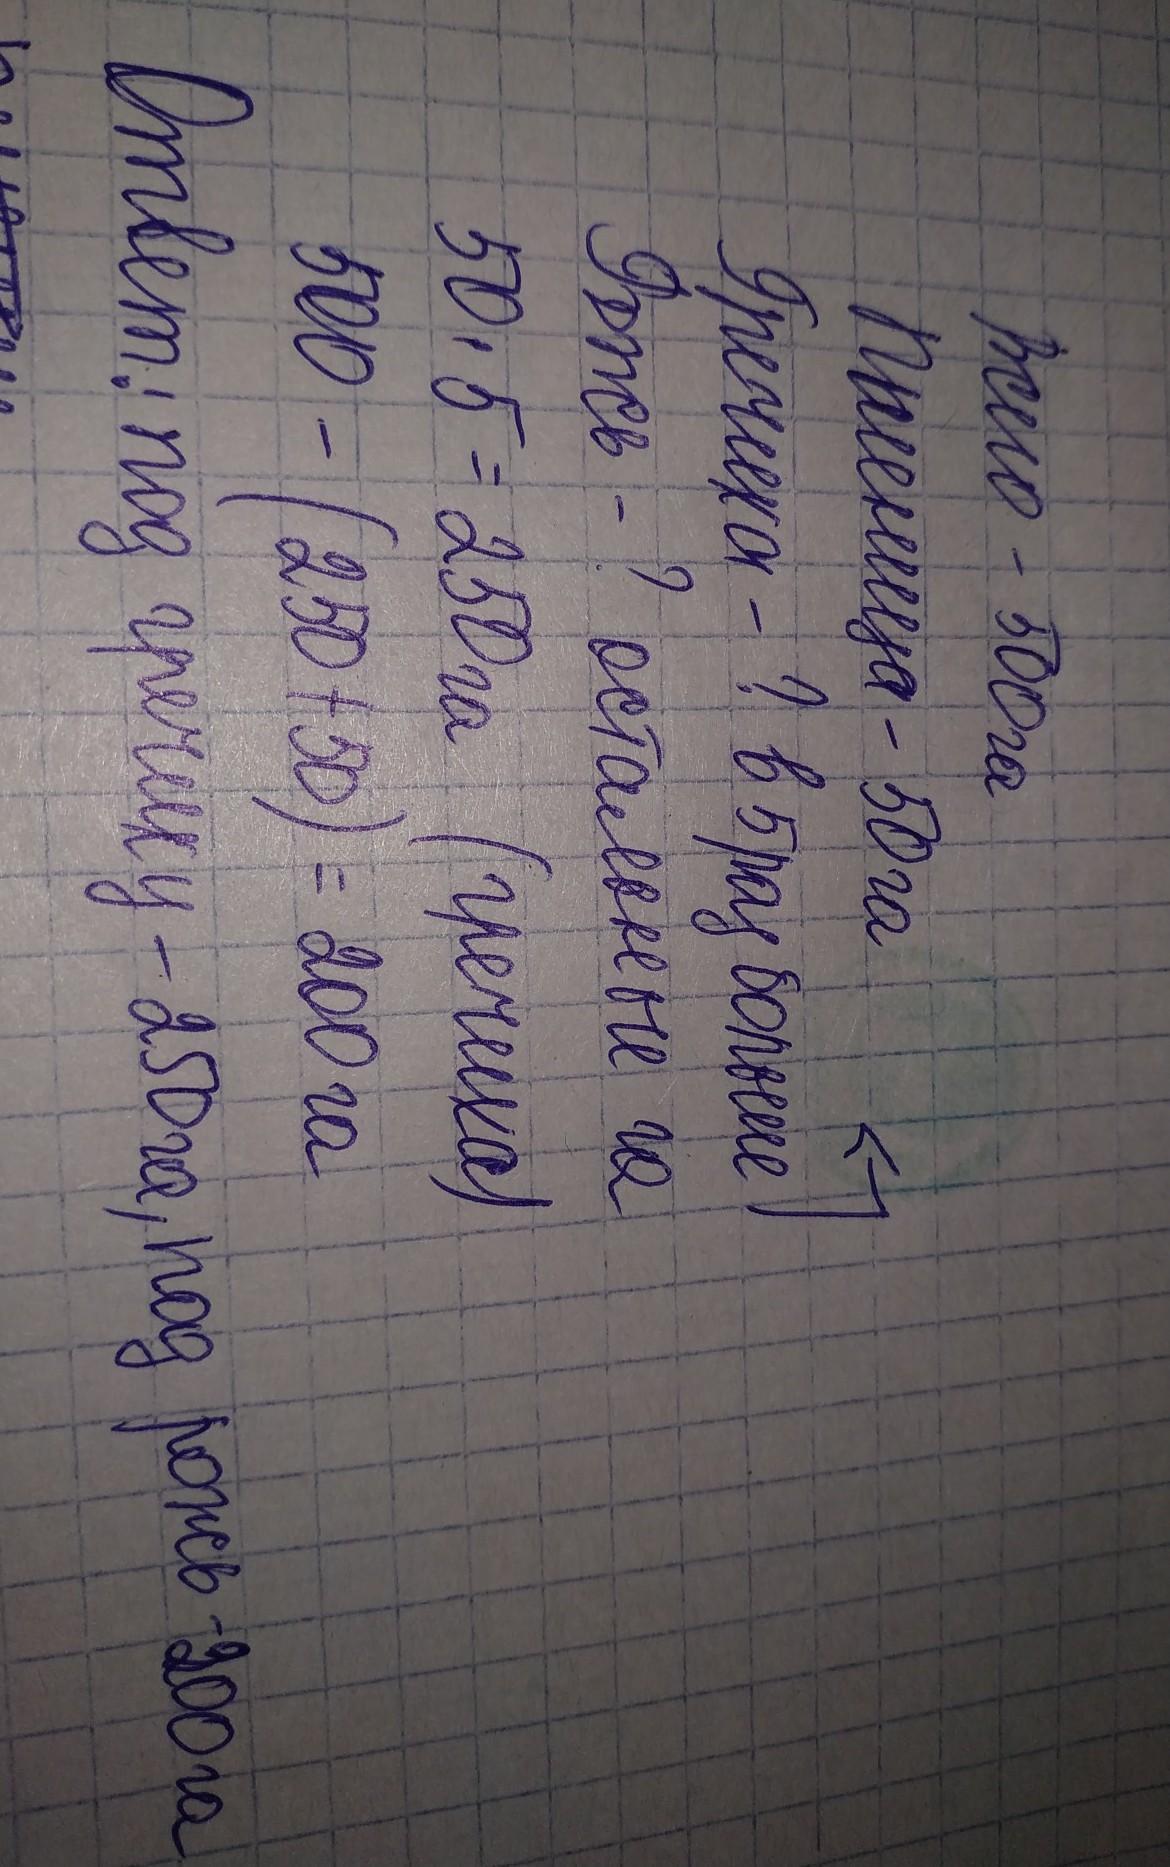 Всего - 500га
Пшеница - 50га
Гречиха - ? в 5 раз больше
Рожь - ? остальные га
50 · 5 = 250га (гречиха)
500 - (250 + 50) = 200га
Ответ: под гречиху - 250га, под рожь - 200га